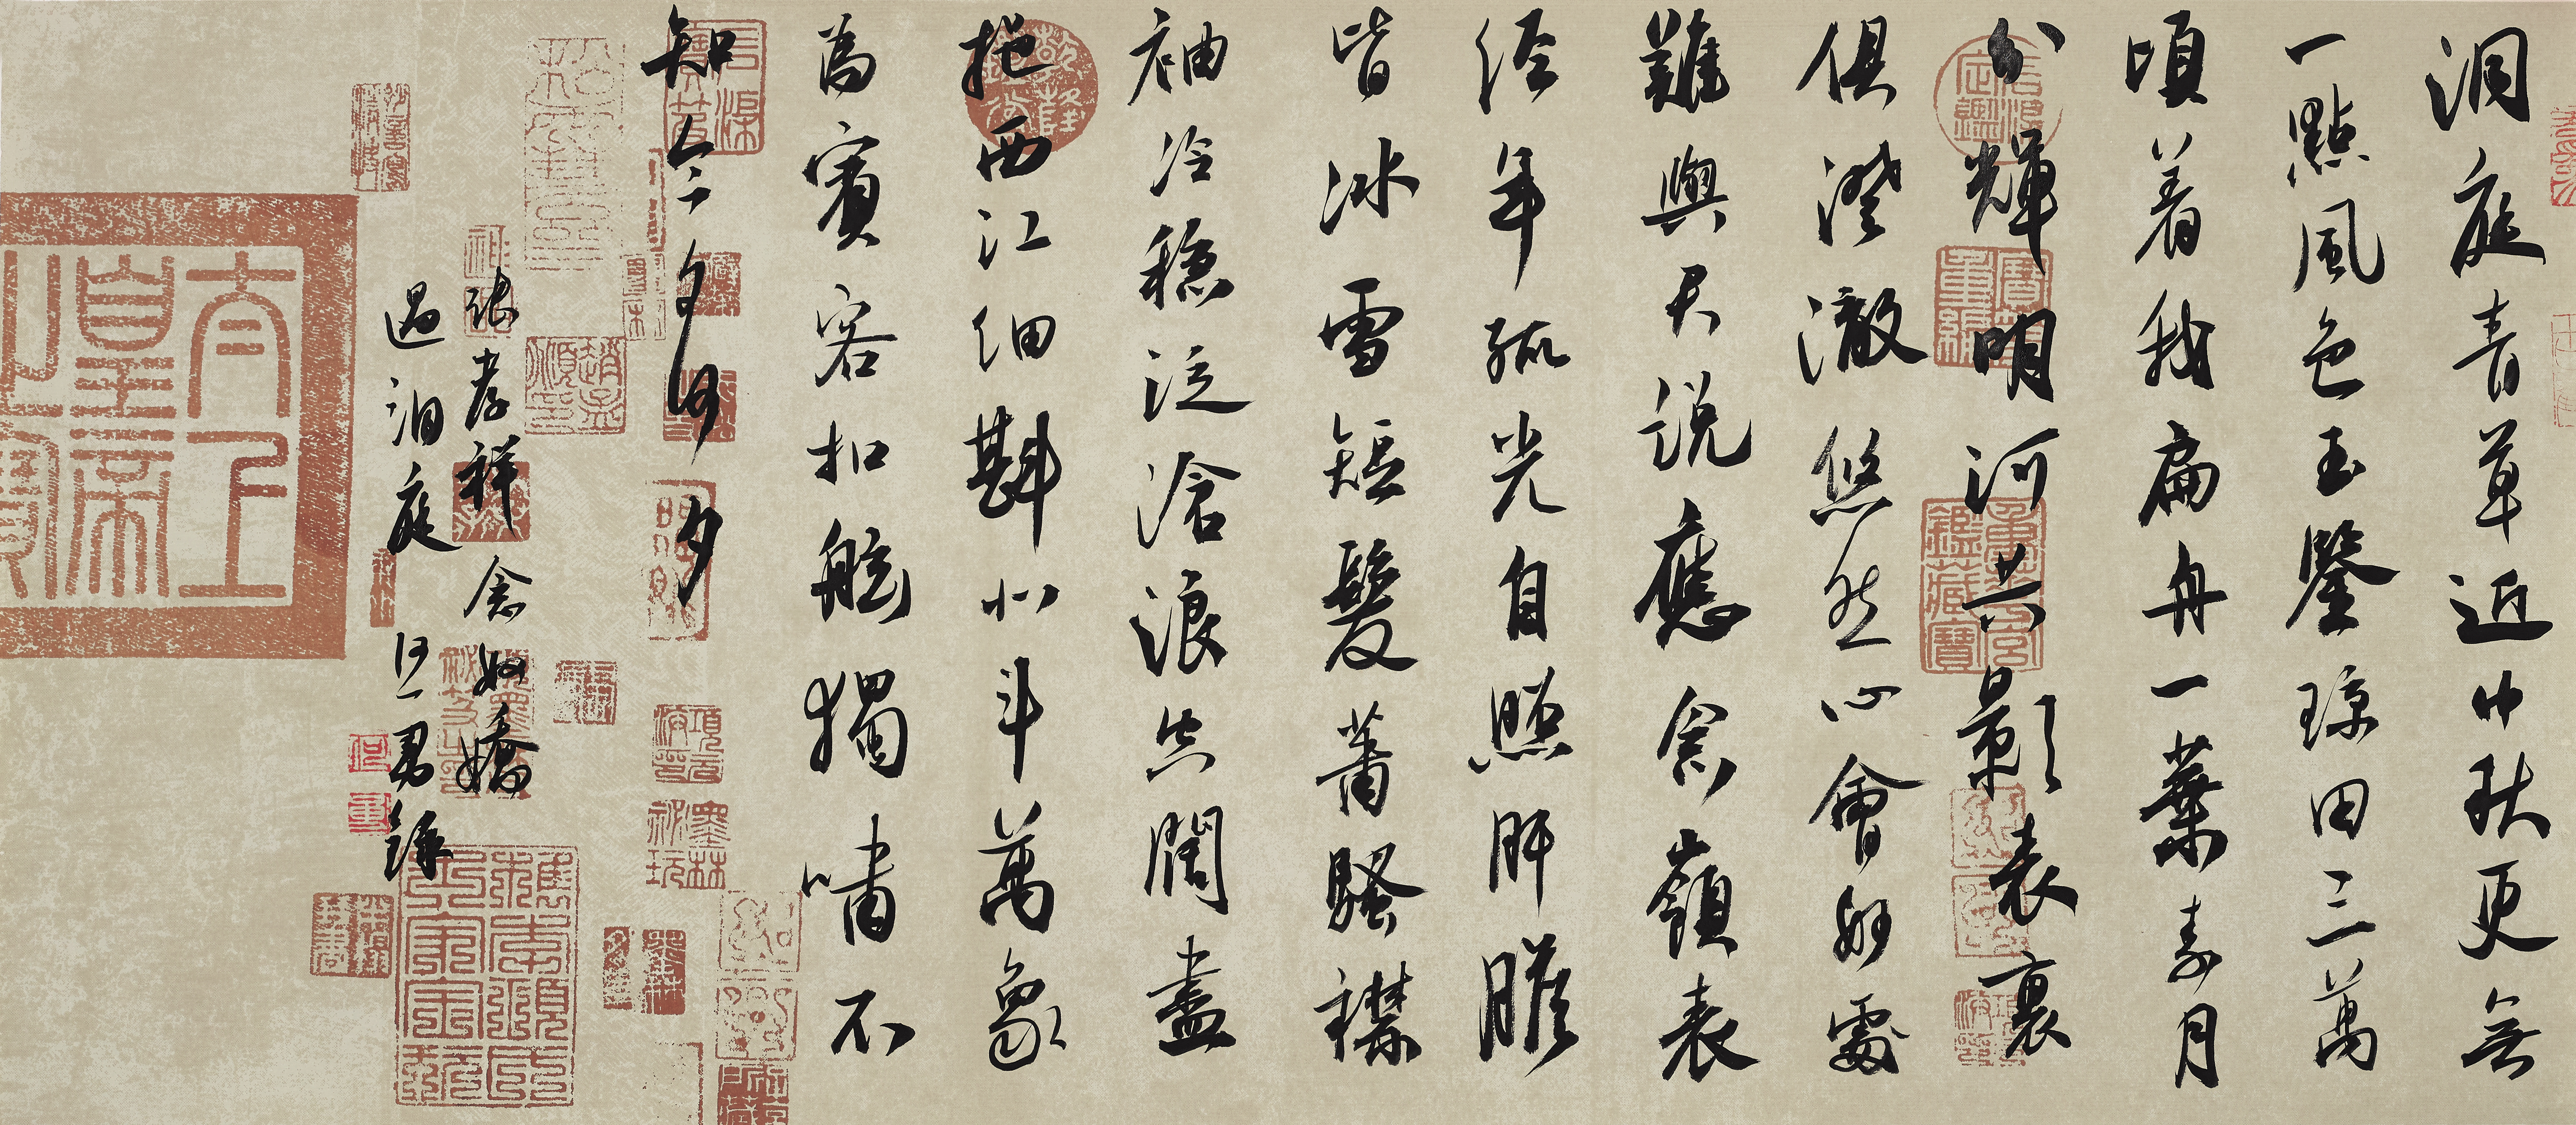 洞庭青草近中秋更無
一點風色玉鑒琼田三萬
頃着我扁舟一葉素月
分輝明河共影表裏
俱澄澈悠然心會妙處
難與君說應念嶺表
經年孤光自照肝膽
皆冰雪短髮蕭騷襟
袖冷穩泛滄浪空闊盡
挹西江細斟北斗萬象
為賓客扣舷獨嘯不
知今夕何夕
張孝祥念奴嬌
過洞庭 但 錄
太上皇帝之寶